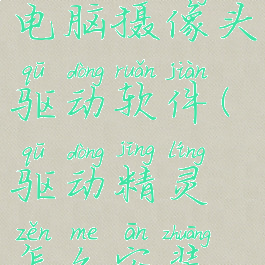 电脑摄像头
qū dòng ruǎn jiàn
驱动软件(
qū dòng jīng líng
驱动精灵
zěn me ān zhuāng
怎么安装